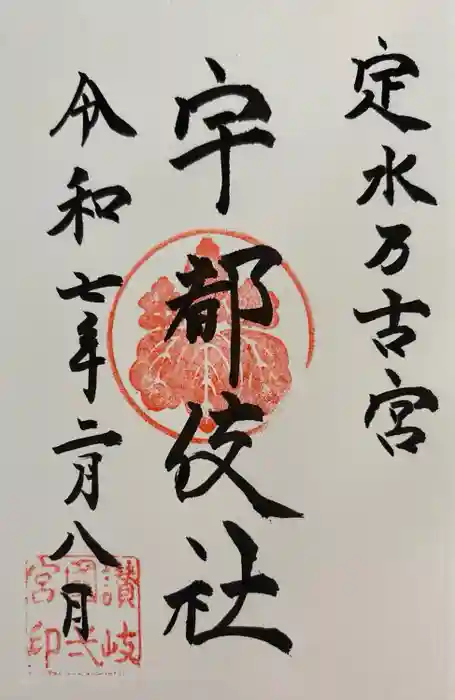 定水万古宮
宇都伎社
令和七年二月八日
讃岐
国弐
宮印